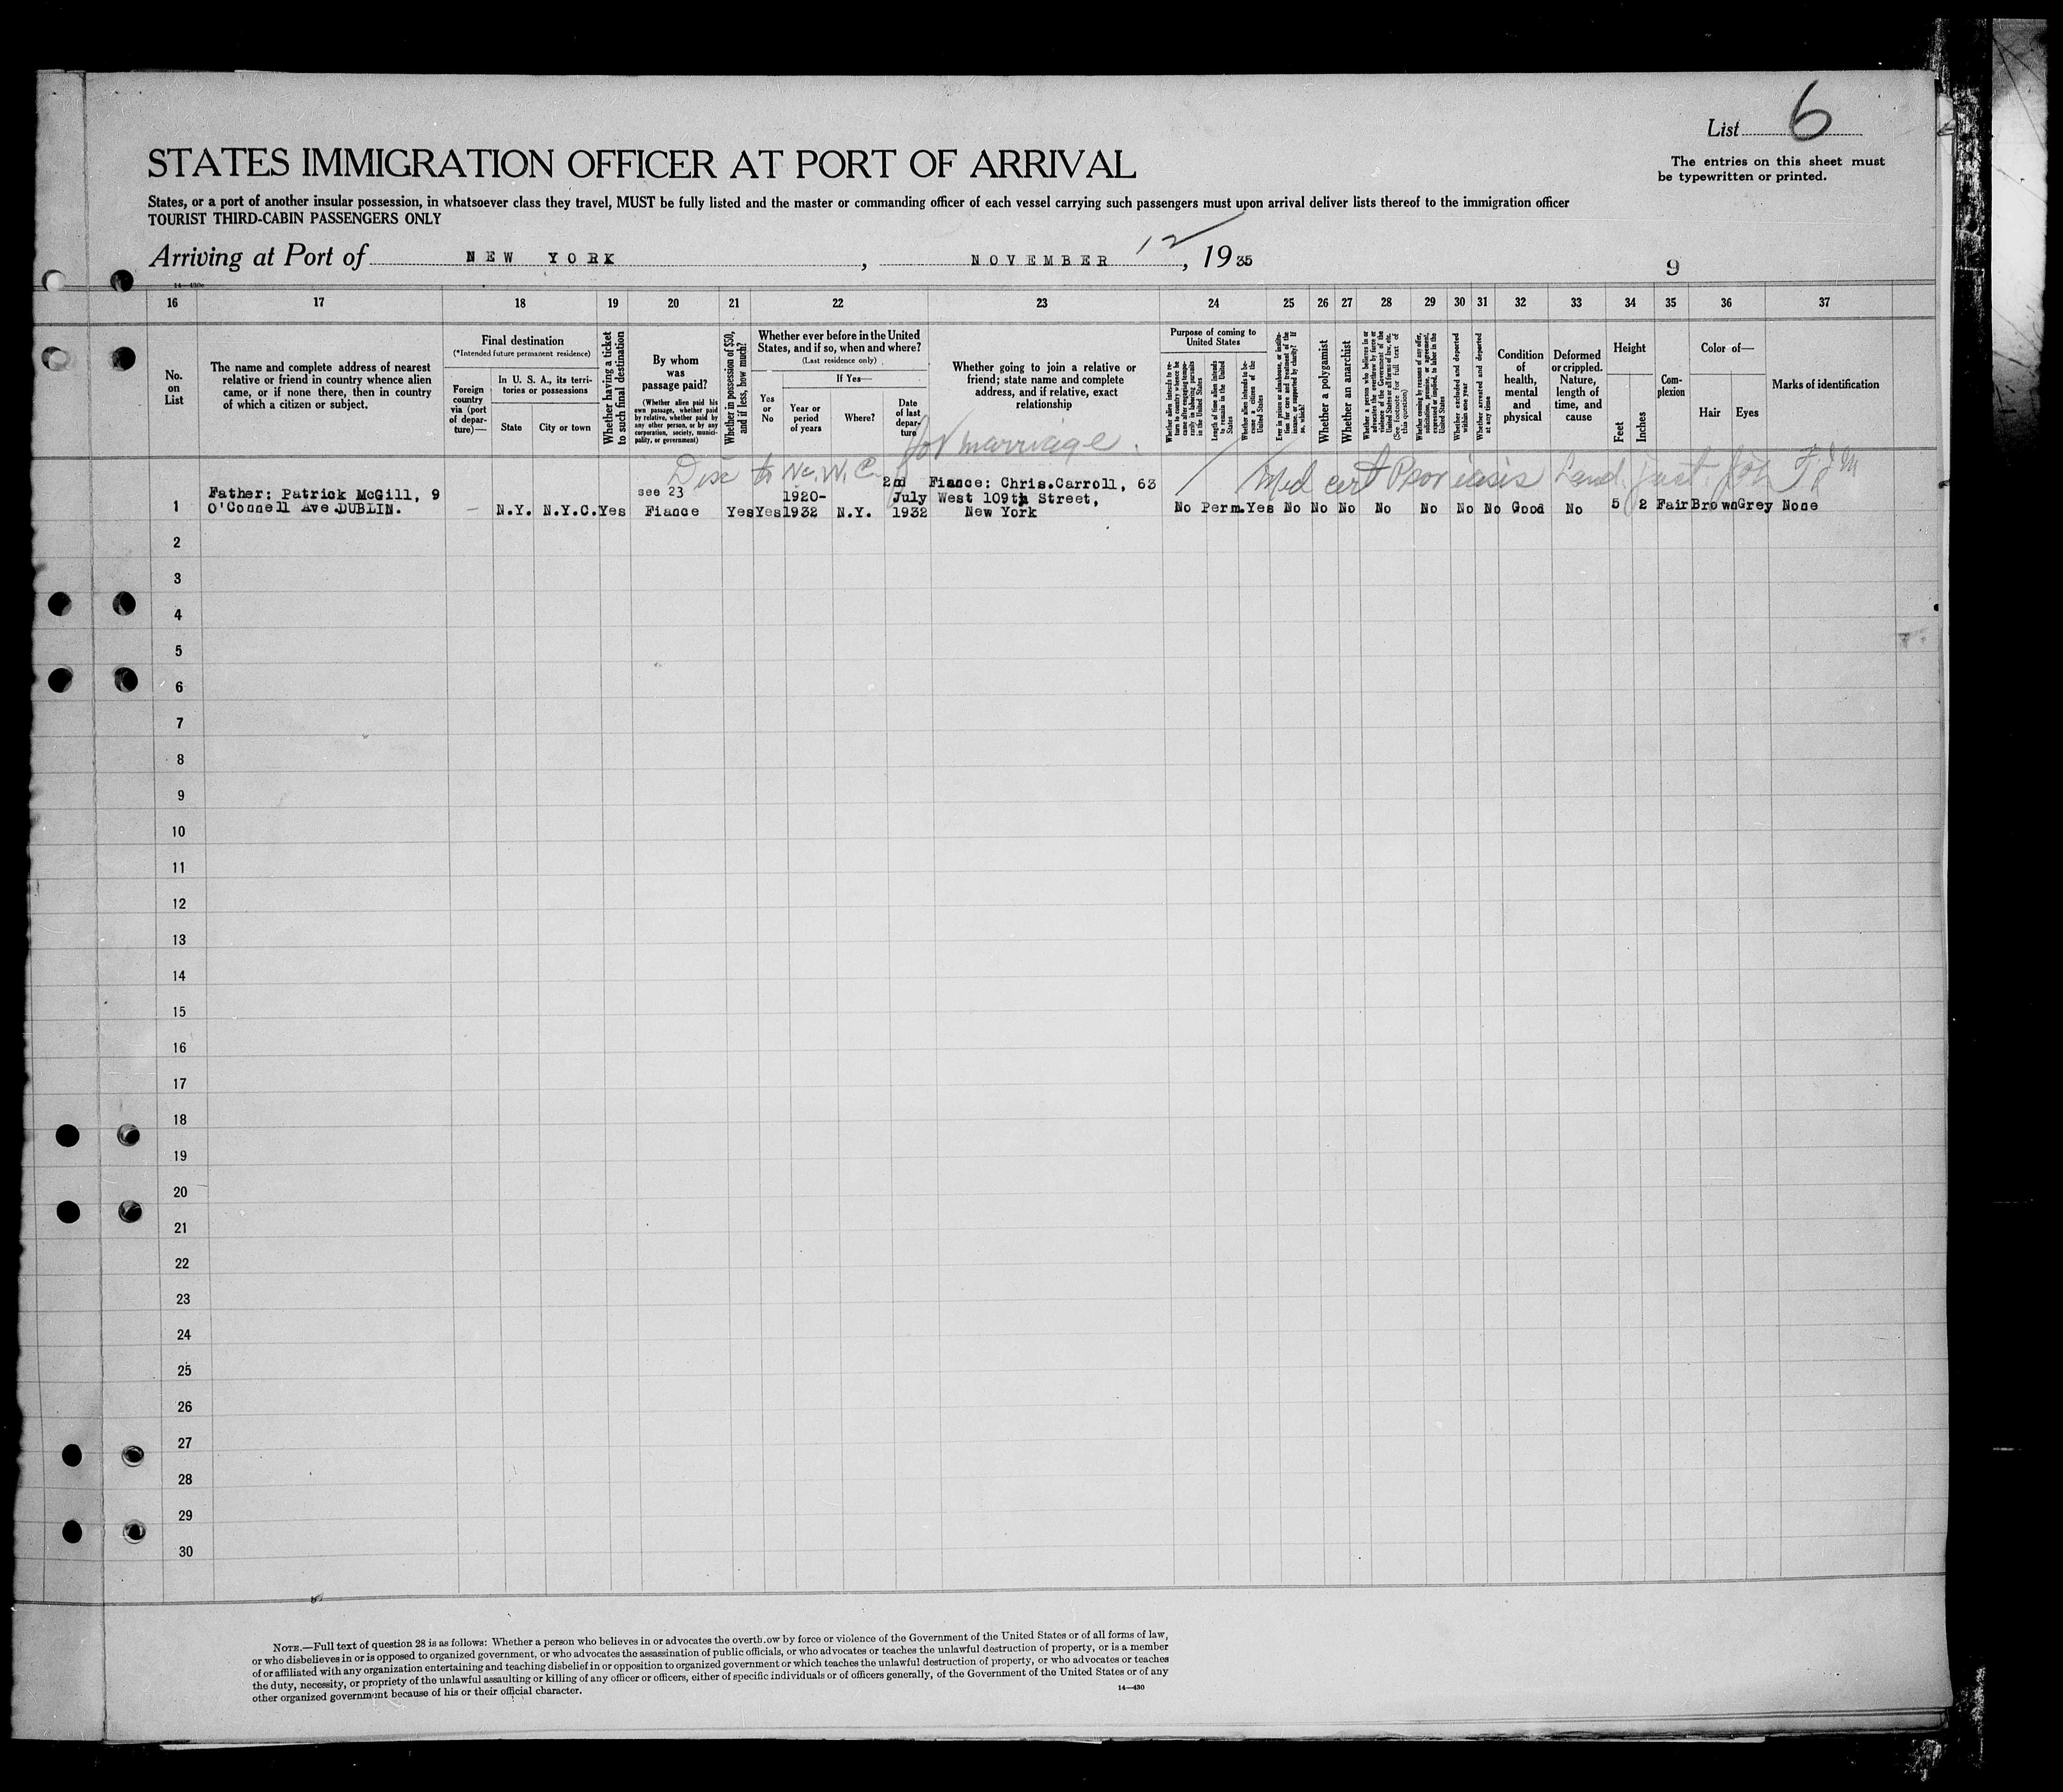 List 6
The entries on this sheet must
be typewritten or printed.
STATES IMMIGRATION OFFICER AT PORT OF ARRIVAL
States, or a port of another insular possession, in whatsoever class they travel, MUST be fully listed and the master or commanding officer of each vessel carrying such passengers must upon arrival deliver lists thereof to the immigration officer
TOURIST THIRD-CABIN PASSENGERS ONLY
Arriving at Port of NEW YORK, NOVEMBER 12, 1935
9
14—430c
16 17 18 19 20 21 22 23 24 25 26 27 28 29 30 31 32 33 34 35 36 37
No.
on
List
The name and complete address of nearest
relative or friend in country whence alien
came, or if none there, then in country
of which a citizen or subject.
Final destination
(*Intended future permanent residence)
Foreign
country
via (port
of depar-
ture)—
In U. S. A., its terri-
tories or possessions
State
City or town
Whether having a ticket
to such final destination
By whom
was
passage paid?
(Whether alien paid his
own passage, whether paid
by relative, whether paid by
any other person, or by any
corporation, society, munici-
pality, or government)
Whether in possession of $50,
and if less, how much?
Whether ever before in the United
States, and if so, when and where?
(Last residence only)
Yes
or
No
If Yes—
Year or
period
of years
Where?
Date
of last
depar-
ture
Whether going to join a relative or
friend; state name and complete
address, and if relative, exact
relationship
Purpose of coming to
United States
Whether alien intends to re-
turn to country whence he
came after engaging tempo-
rarily in laboring pursuits
in the United States
Length of time alien intends
to remain in the United
States
Whether alien intends to be-
come a citizen of the
United States
Ever in prison or almshouse, or institu-
tion for care and treatment of the
insane, or supported by charity? If
so, which?
Whether a polygamist
Whether an anarchist
Whether a person who believes in or
advocates the overthrow by force or
violence of the Government of the
United States or all forms of law, etc.
(See footnote for full text of
this question)
Whether coming by reason of any offer,
solicitation, promise, or agreement,
expressed or implied, to labor in the
United States
Whether excluded and deported
within one year
Whether arrested and deported
at any time
Condition
of
health,
mental
and
physical
Deformed
or crippled.
Nature,
length of
time, and
cause
Height
Feet
Inches
Com-
plexion
Color of—
Hair
Eyes
Marks of identification
for marriage.
Disc to W.C. Med cert Psoriasis Land. just. F.J.M
1
Father: Patrick McGill, 9
O'Connell Ave.DUBLIN.
— N.Y. N.Y.C. Yes
see 23
Fiance
Yes Yes
1920-
1932
N.Y.
2nd
July
1932
Fiance: Chris.Carroll, 63
West 109th Street,
New York
No Perm. Yes No No No No No No No Good No 5 2 Fair Brown Grey None
2
3
4
5
6
7
8
9
10
11
12
13
14
15
16
17
18
19
20
21
22
23
24
25
26
27
28
29
30
NOTE.—Full text of question 28 is as follows: Whether a person who believes in or advocates the overth.ow by force or violence of the Government of the United States or of all forms of law,
or who disbelieves in or is opposed to organized government, or who advocates the assassination of public officials, or who advocates or teaches the unlawful destruction of property, or is a member
of or affiliated with any organization entertaining and teaching disbelief in or opposition to organized government or which teaches the unlawful destruction of property, or who advocates or teaches
the duty, necessity, or propriety of the unlawful assaulting or killing of any officer or officers, either of specific individuals or of officers generally, of the Government of the United States or of any
other organized government because of his or their official character.
14—430